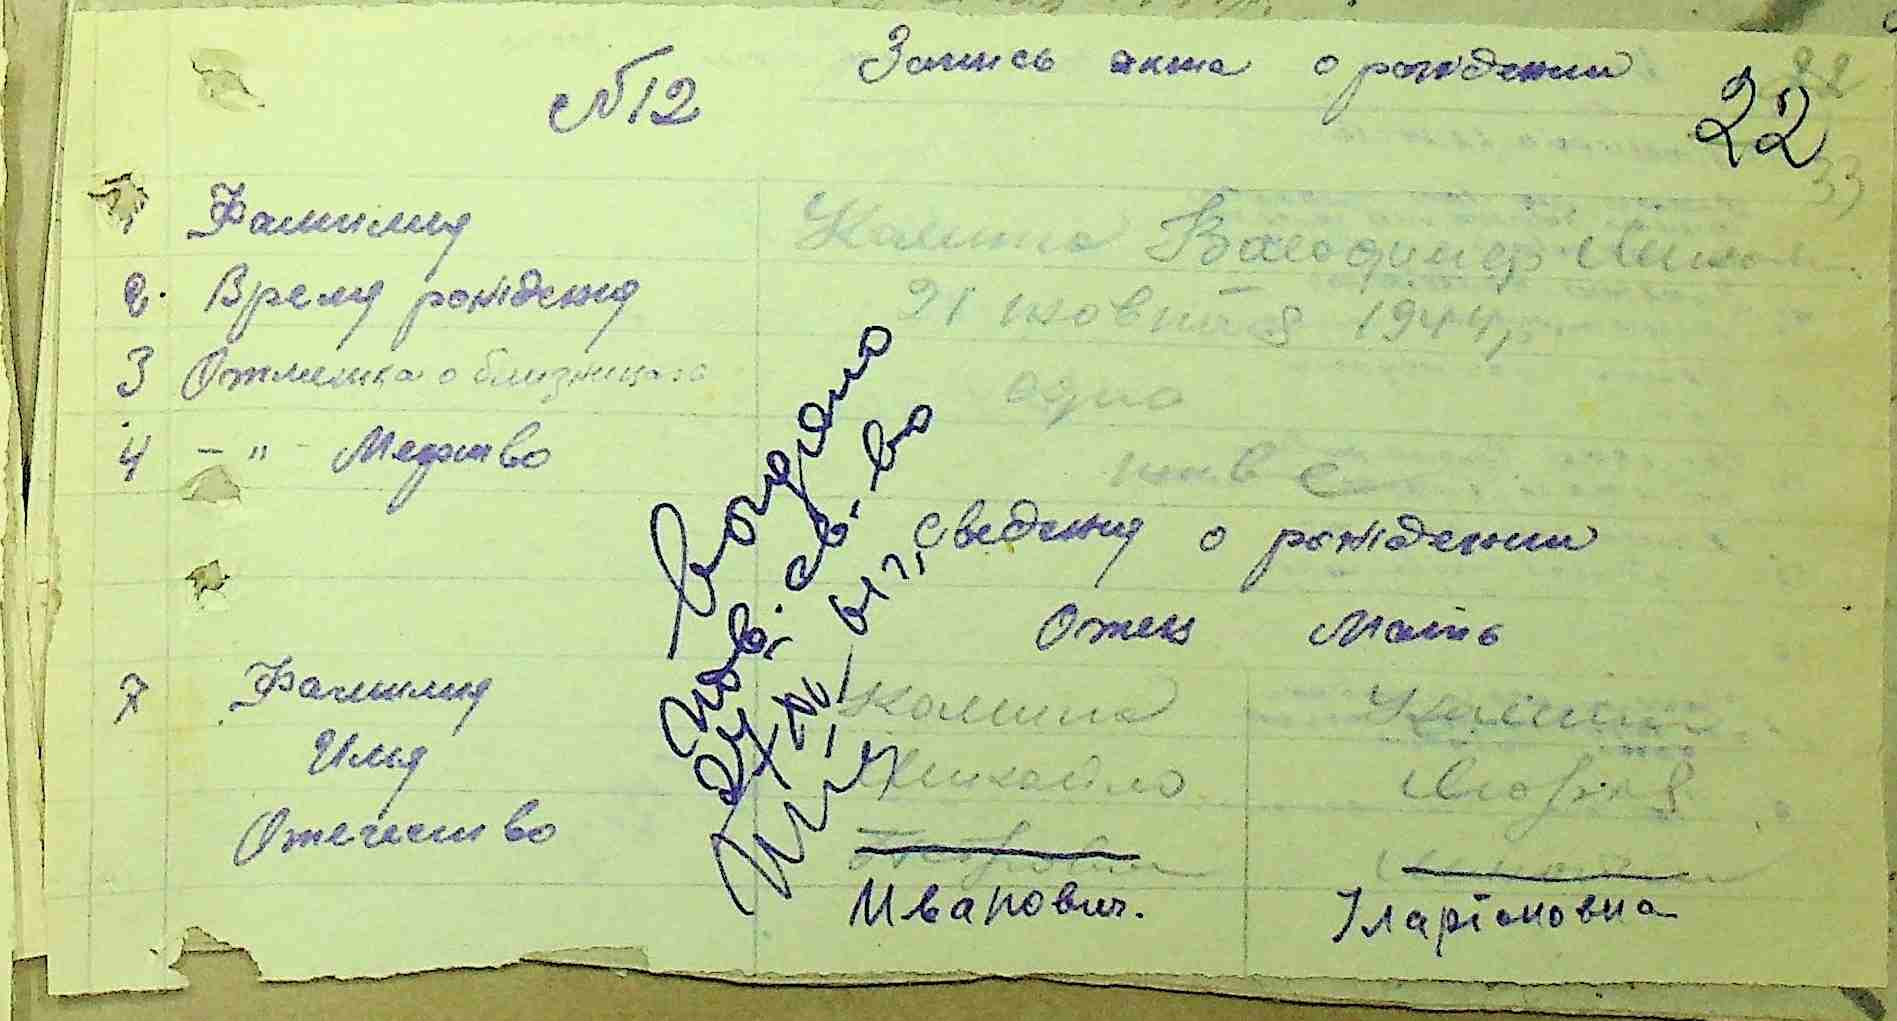 Запись акта о рождении
№12
22
33
1 Фамилия Калина Володимир
2. Время рождения 21 жовтня 1944р
3 Отметка о близнецах одно
4 - " - Мертво живе
Сведения о рождении
Отец Мать
7 Фамилия Калина Калина
Имя Михайло Марія
Отечество Петрович
Иванович. Іларіоновна
выдано
пов. св-во